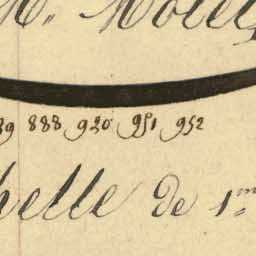 M. Motel
89 888 920 951 952
helle de 1m